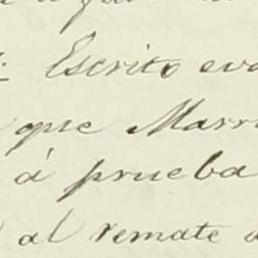 Escrito eva
que Marr
á prueba
al remate